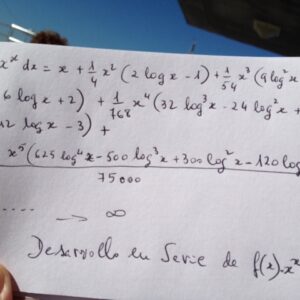 x^x dx = x + 1/4 x² (2 log x - 1) + 1/54 x³ (9 log² x
6 log x + 2) + 1/768 x⁴ (32 log³ x - 24 log² x +
12 log x - 3) +
x⁵ (625 log⁴ x - 500 log³ x + 300 log² x - 120 log
75000
.... → ∞
Desarollo en Serie de f(x)=x^x